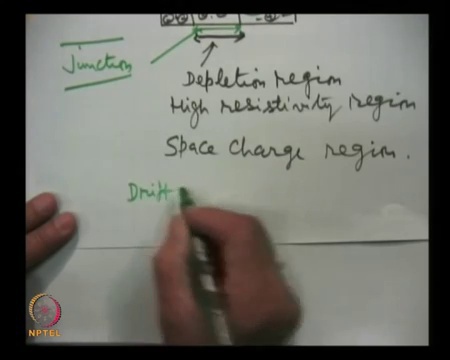 Junction
Depletion region
High resistivity region
Space Charge region.
Drift
NPTEL